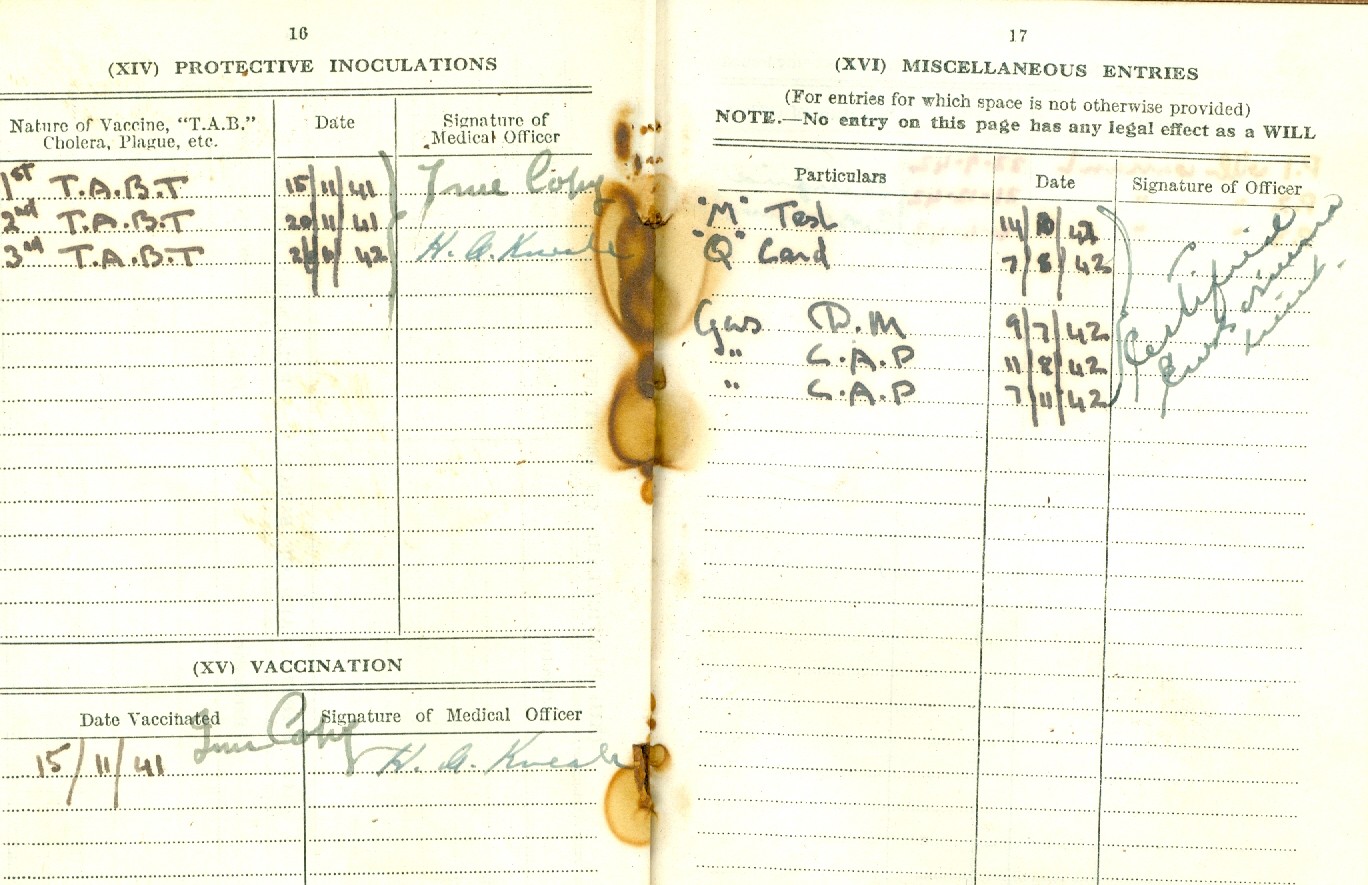 16
(XIV) PROTECTIVE INOCULATIONS
Nature of Vaccine, "T.A.B." Cholera, Plague, etc.
Date
Signature of Medical Officer
1st T.A.B.T 15/11/41 True Copy
2nd T.A.B.T 20/11/41
3rd T.A.B.T 42 H. A. Kneale
(XV) VACCINATION
Date Vaccinated
Signature of Medical Officer
15/11/41 True Copy H. A. Kneale
17
(XVI) MISCELLANEOUS ENTRIES
(For entries for which space is not otherwise provided)
NOTE.—No entry on this page has any legal effect as a WILL
Particulars
Date
Signature of Officer
"M" Test 14
"Q" Card 7/8/42
Gas D.M 9/7/42
" C.A.P 11/8/42
" C.A.P 7/11/42
Certified